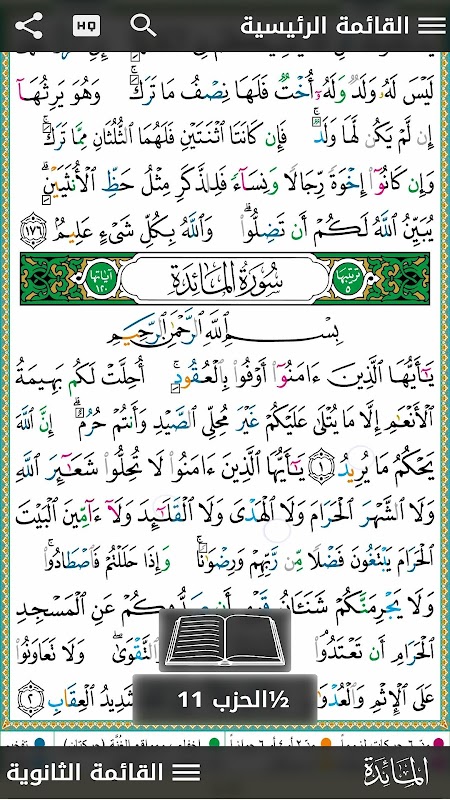 القائمة الرئيسية
HQ
لَيْسَ لَهُۥ وَلَدٌ وَلَهُۥٓ أُخْتٌ فَلَهَا نِصْفُ مَا تَرَكَ ۚ وَهُوَ يَرِثُهَآ
إِن لَّمْ يَكُن لَّهَا وَلَدٌ ۚ فَإِن كَانَتَا ٱثْنَتَيْنِ فَلَهُمَا ٱلثُّلُثَانِ مِمَّا تَرَكَ ۚ
وَإِن كَانُوٓا۟ إِخْوَةً رِّجَالًا وَنِسَآءً فَلِلذَّكَرِ مِثْلُ حَظِّ ٱلْأُنثَيَيْنِ ۗ
يُبَيِّنُ ٱللَّهُ لَكُمْ أَن تَضِلُّوا۟ ۗ وَٱللَّهُ بِكُلِّ شَىْءٍ عَلِيمٌۢ ١٧٦
ترتيبها ٥
سُورَةُ المَائِدَةِ
آياتها ١٢٠
بِسْمِ ٱللَّهِ ٱلرَّحْمَٰنِ ٱلرَّحِيمِ
يَٰٓأَيُّهَا ٱلَّذِينَ ءَامَنُوٓا۟ أَوْفُوا۟ بِٱلْعُقُودِ ۚ أُحِلَّتْ لَكُم بَهِيمَةُ
ٱلْأَنْعَٰمِ إِلَّا مَا يُتْلَىٰ عَلَيْكُمْ غَيْرَ مُحِلِّى ٱلصَّيْدِ وَأَنتُمْ حُرُمٌ ۗ إِنَّ ٱللَّهَ
يَحْكُمُ مَا يُرِيدُ ١ يَٰٓأَيُّهَا ٱلَّذِينَ ءَامَنُوا۟ لَا تُحِلُّوا۟ شَعَٰٓئِرَ ٱللَّهِ
وَلَا ٱلشَّهْرَ ٱلْحَرَامَ وَلَا ٱلْهَدْىَ وَلَا ٱلْقَلَٰٓئِدَ وَلَآ ءَآمِّينَ ٱلْبَيْتَ
ٱلْحَرَامَ يَبْتَغُونَ فَضْلًا مِّن رَّبِّهِمْ وَرِضْوَٰنًا ۚ وَإِذَا حَلَلْتُمْ فَٱصْطَادُوا۟ ۚ
وَلَا يَجْرِمَنَّكُمْ شَنَـَٔانُ قَوْمٍ أَن صَدُّوكُمْ عَنِ ٱلْمَسْجِدِ
ٱلْحَرَامِ أَن تَعْتَدُوا۟ ٱلتَّقْوَىٰ ۖ وَلَا تَعَاوَنُوا۟
عَلَى ٱلْإِثْمِ وَٱلْعُدْوَٰ شَدِيدُ ٱلْعِقَابِ ٢
½الحزب 11
القائمة الثانوية
المَائِدَة